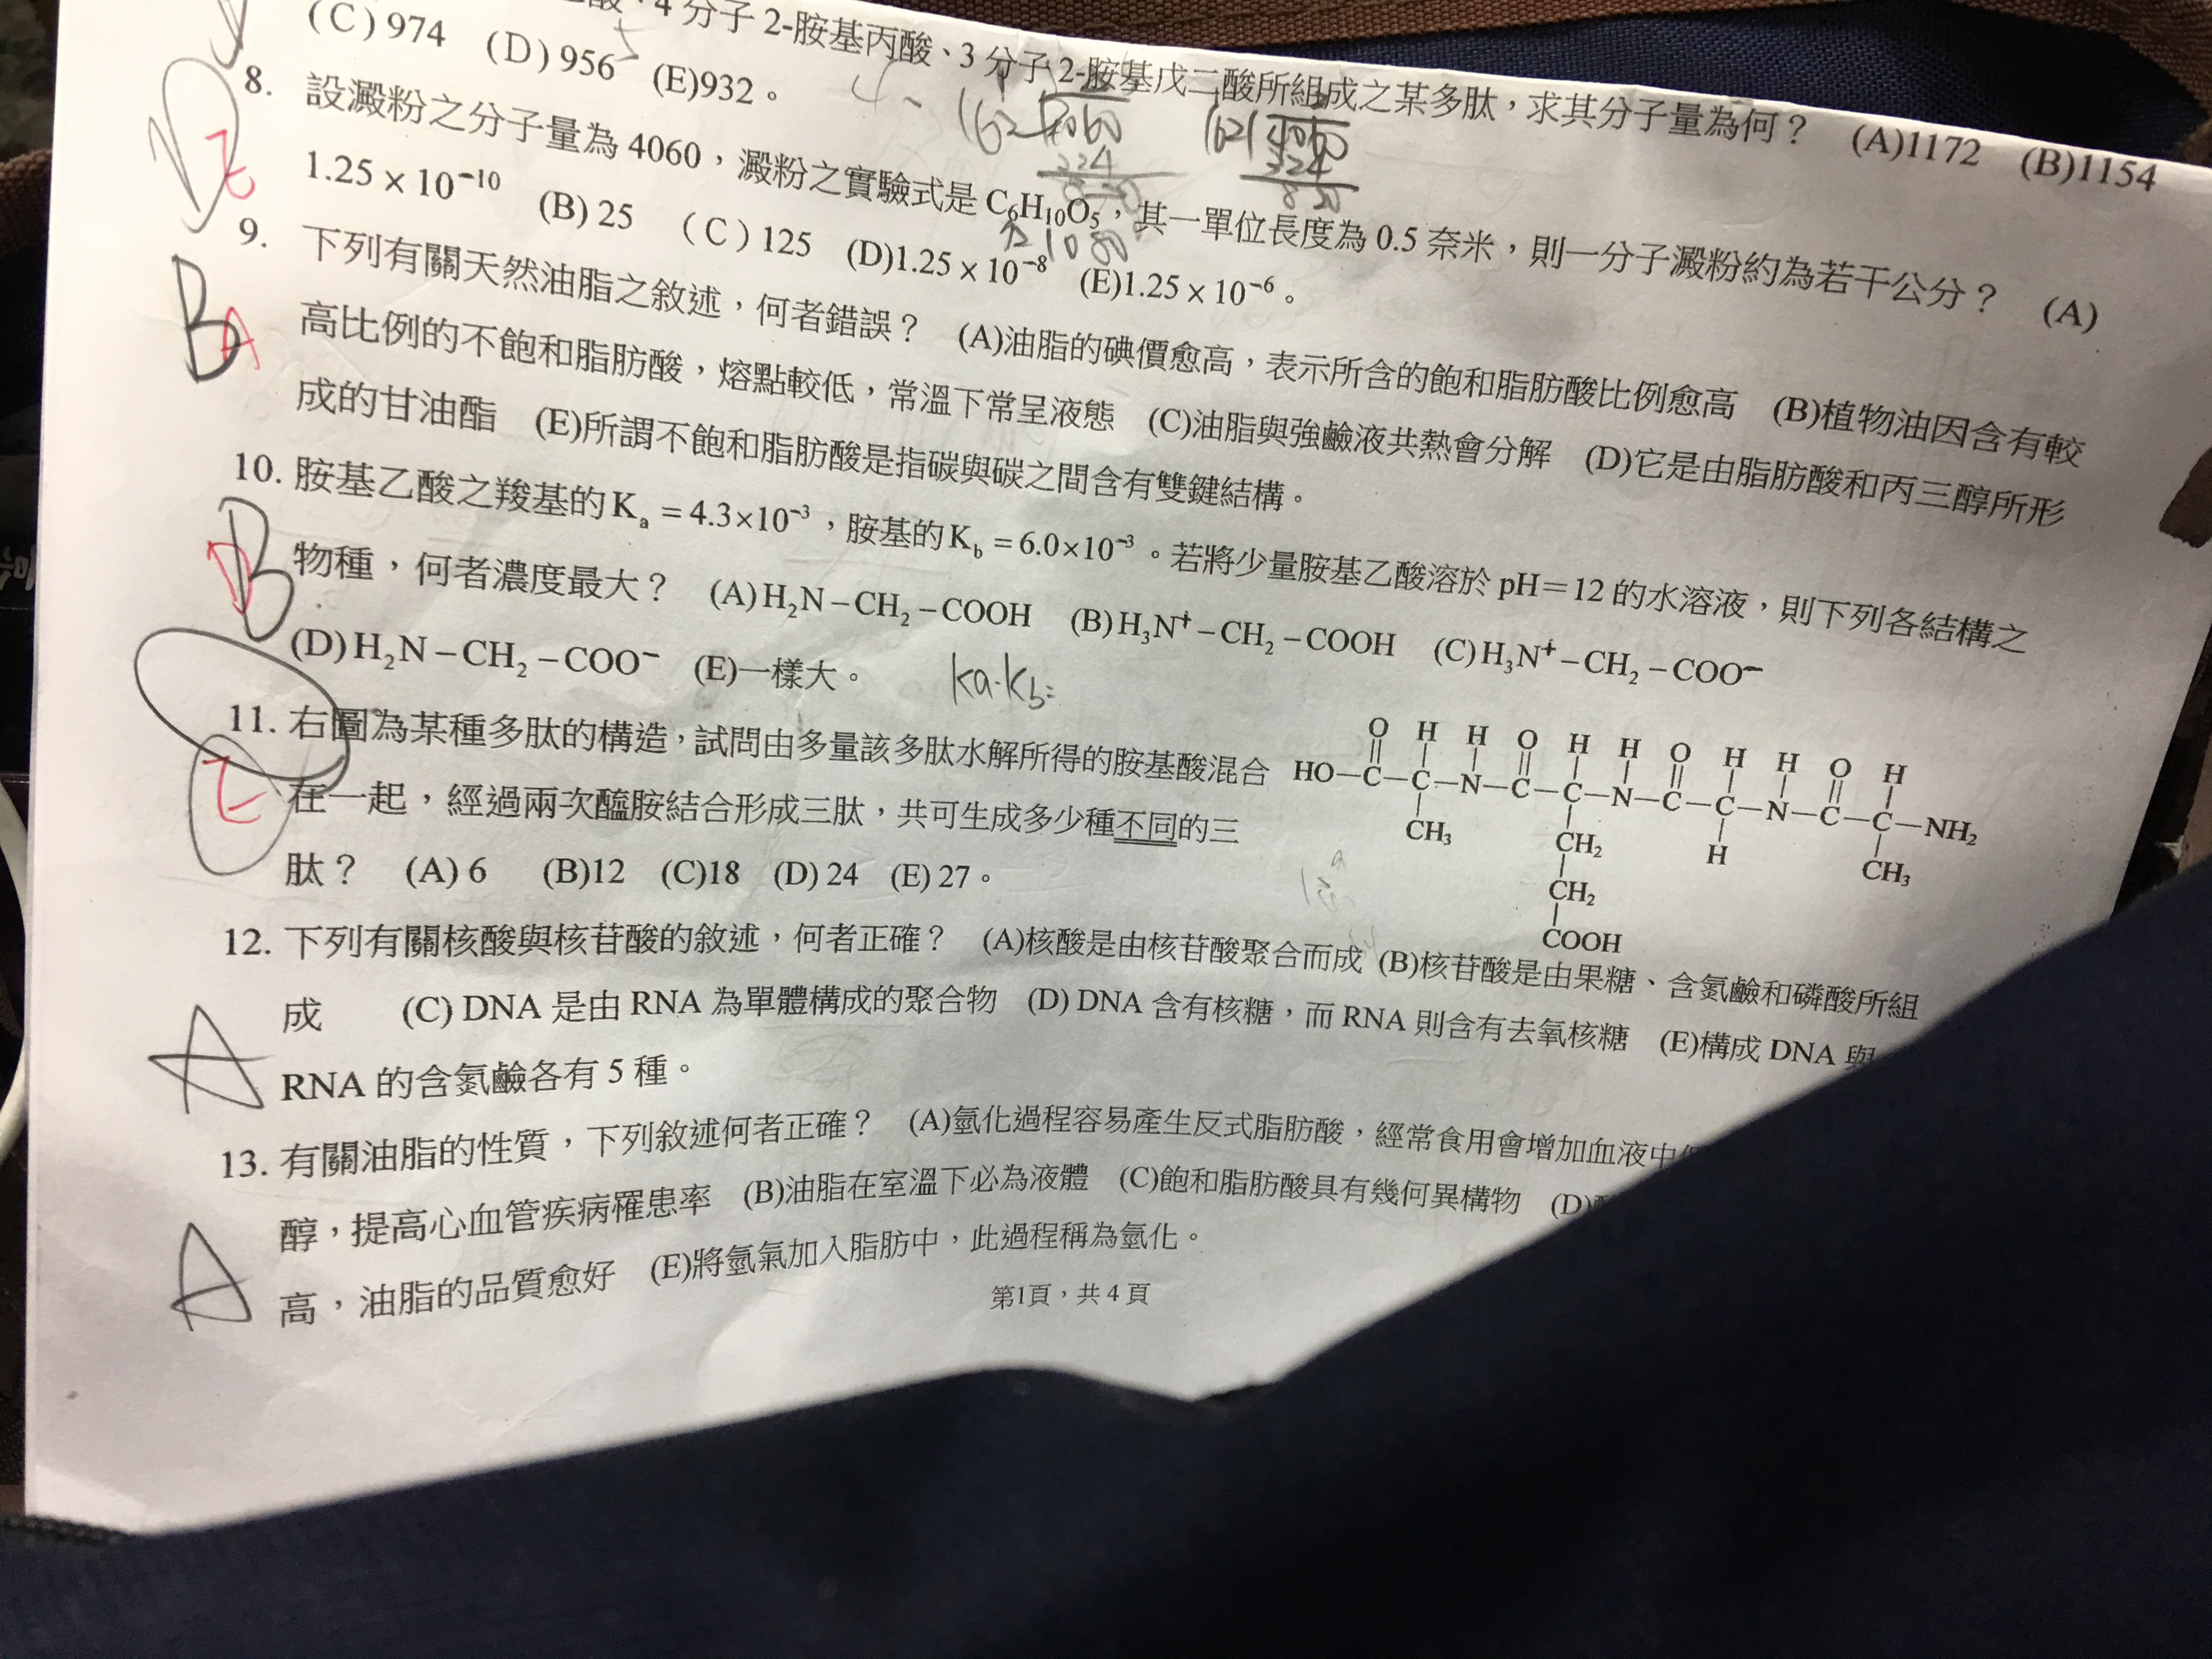 4 分子 2-胺基丙酸、3 分子 2-胺基戊二酸所組成之某多肽，求其分子量為何？ (A)1172 (B)1154
(C) 974 (D) 956 (E)932。
8. 設澱粉之分子量為 4060，澱粉之實驗式是 C₆H₁₀O₅，其一單位長度為 0.5 奈米，則一分子澱粉約為若干公分？ (A)
1.25 × 10⁻¹⁰ (B) 25 (C) 125 (D)1.25 × 10⁻⁸ (E)1.25 × 10⁻⁶。
9. 下列有關天然油脂之敘述，何者錯誤？ (A)油脂的碘價愈高，表示所含的飽和脂肪酸比例愈高 (B)植物油因含有較
高比例的不飽和脂肪酸，熔點較低，常溫下常呈液態 (C)油脂與強鹼液共熱會分解 (D)它是由脂肪酸和丙三醇所形
成的甘油酯 (E)所謂不飽和脂肪酸是指碳與碳之間含有雙鍵結構。
10. 胺基乙酸之羧基的 Kₐ = 4.3×10⁻³，胺基的 K_b = 6.0×10⁻³。若將少量胺基乙酸溶於 pH＝12 的水溶液，則下列各結構之
物種，何者濃度最大？ (A) H₂N－CH₂－COOH (B) H₃N⁺－CH₂－COOH (C) H₃N⁺－CH₂－COO⁻
(D) H₂N－CH₂－COO⁻ (E)一樣大。
ka·kb=
11. 右圖為某種多肽的構造，試問由多量該多肽水解所得的胺基酸混合
在一起，經過兩次醯胺結合形成三肽，共可生成多少種不同的三
肽？ (A) 6 (B)12 (C)18 (D) 24 (E) 27。
O H H O H H O H H O H
HO－C－C－N－C－C－N－C－C－N－C－C－NH₂
CH₃ CH₂ H CH₃
CH₂
COOH
12. 下列有關核酸與核苷酸的敘述，何者正確？ (A)核酸是由核苷酸聚合而成 (B)核苷酸是由果糖、含氮鹼和磷酸所組
成 (C) DNA 是由 RNA 為單體構成的聚合物 (D) DNA 含有核糖，而 RNA 則含有去氧核糖 (E)構成 DNA 與
RNA 的含氮鹼各有 5 種。
13. 有關油脂的性質，下列敘述何者正確？ (A)氫化過程容易產生反式脂肪酸，經常食用會增加血液中
醇，提高心血管疾病罹患率 (B)油脂在室溫下必為液體 (C)飽和脂肪酸具有幾何異構物 (D)
高，油脂的品質愈好 (E)將氫氣加入脂肪中，此過程稱為氫化。
第1頁，共 4 頁
D
E
B
A
B
D
E
A
A
162 4060
324
820
162 4060
324
820